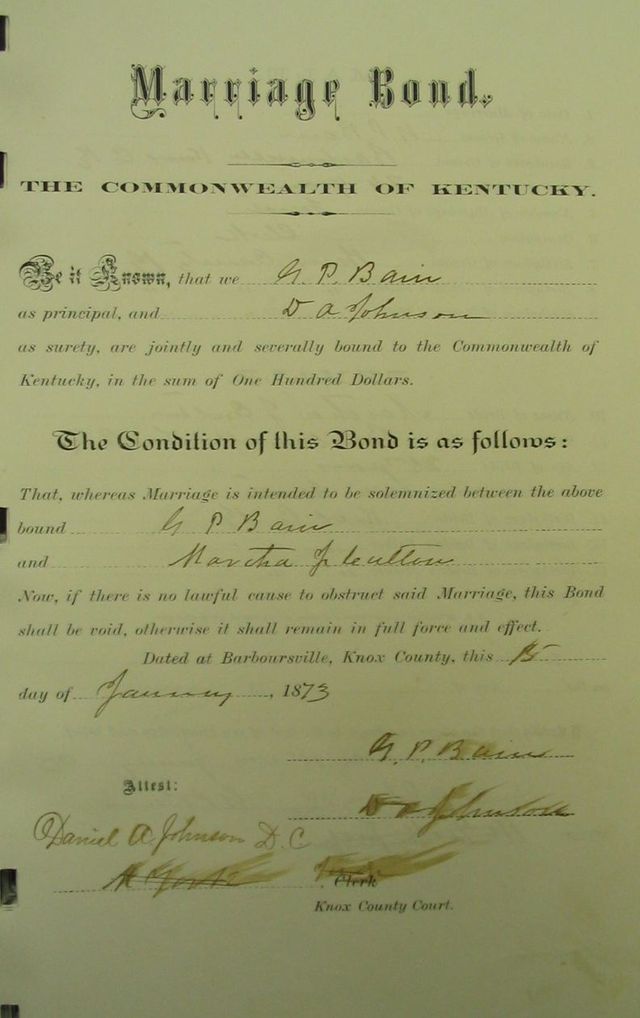 Marriage Bond.
THE COMMONWEALTH OF KENTUCKY.
Be it Known, that we G. P. Bain
as principal, and D A Johnson
as surety, are jointly and severally bound to the Commonwealth of
Kentucky, in the sum of One Hundred Dollars.
The Condition of this Bond is as follows:
That, whereas Marriage is intended to be solemnized between the above
bound G P Bain
and Martha J Cutton
Now, if there is no lawful cause to obstruct said Marriage, this Bond
shall be void, otherwise it shall remain in full force and effect.
Dated at Barboursville, Knox County, this 15
day of January, 1873
G. P. Bain
Attest:
D A Johnson
Daniel A Johnson D. C
Clerk
Knox County Court.